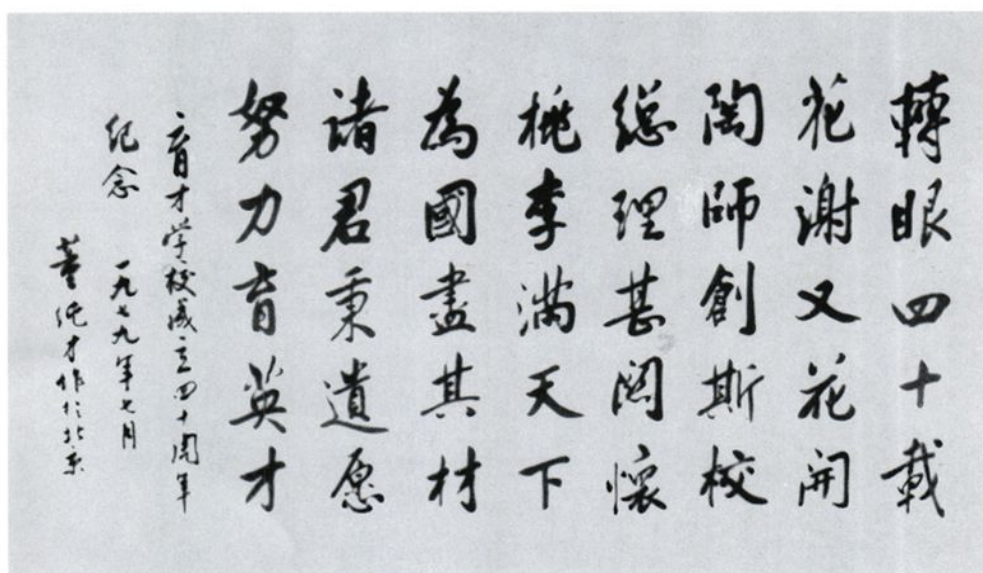 轉眼四十載
花謝又花開
陶師創斯校
總理甚関懷
桃李滿天下
為國盡其材
諸君秉遺愿
努力育英才
育才学校成立四十周年
纪念 一九七九年七月
董纯才作於北京